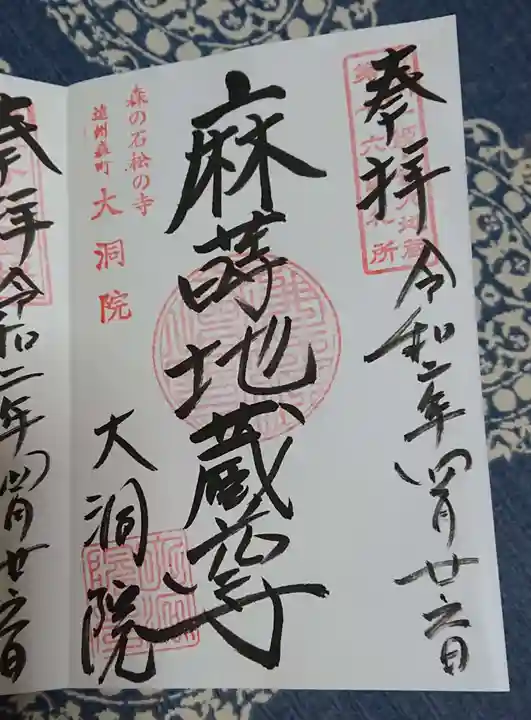 奉拝
令和二年四月廿六日
麻蒔地蔵尊
森の石松の寺
遠州森町 大洞院
大洞院
奉拝
令和二年四月廿六日